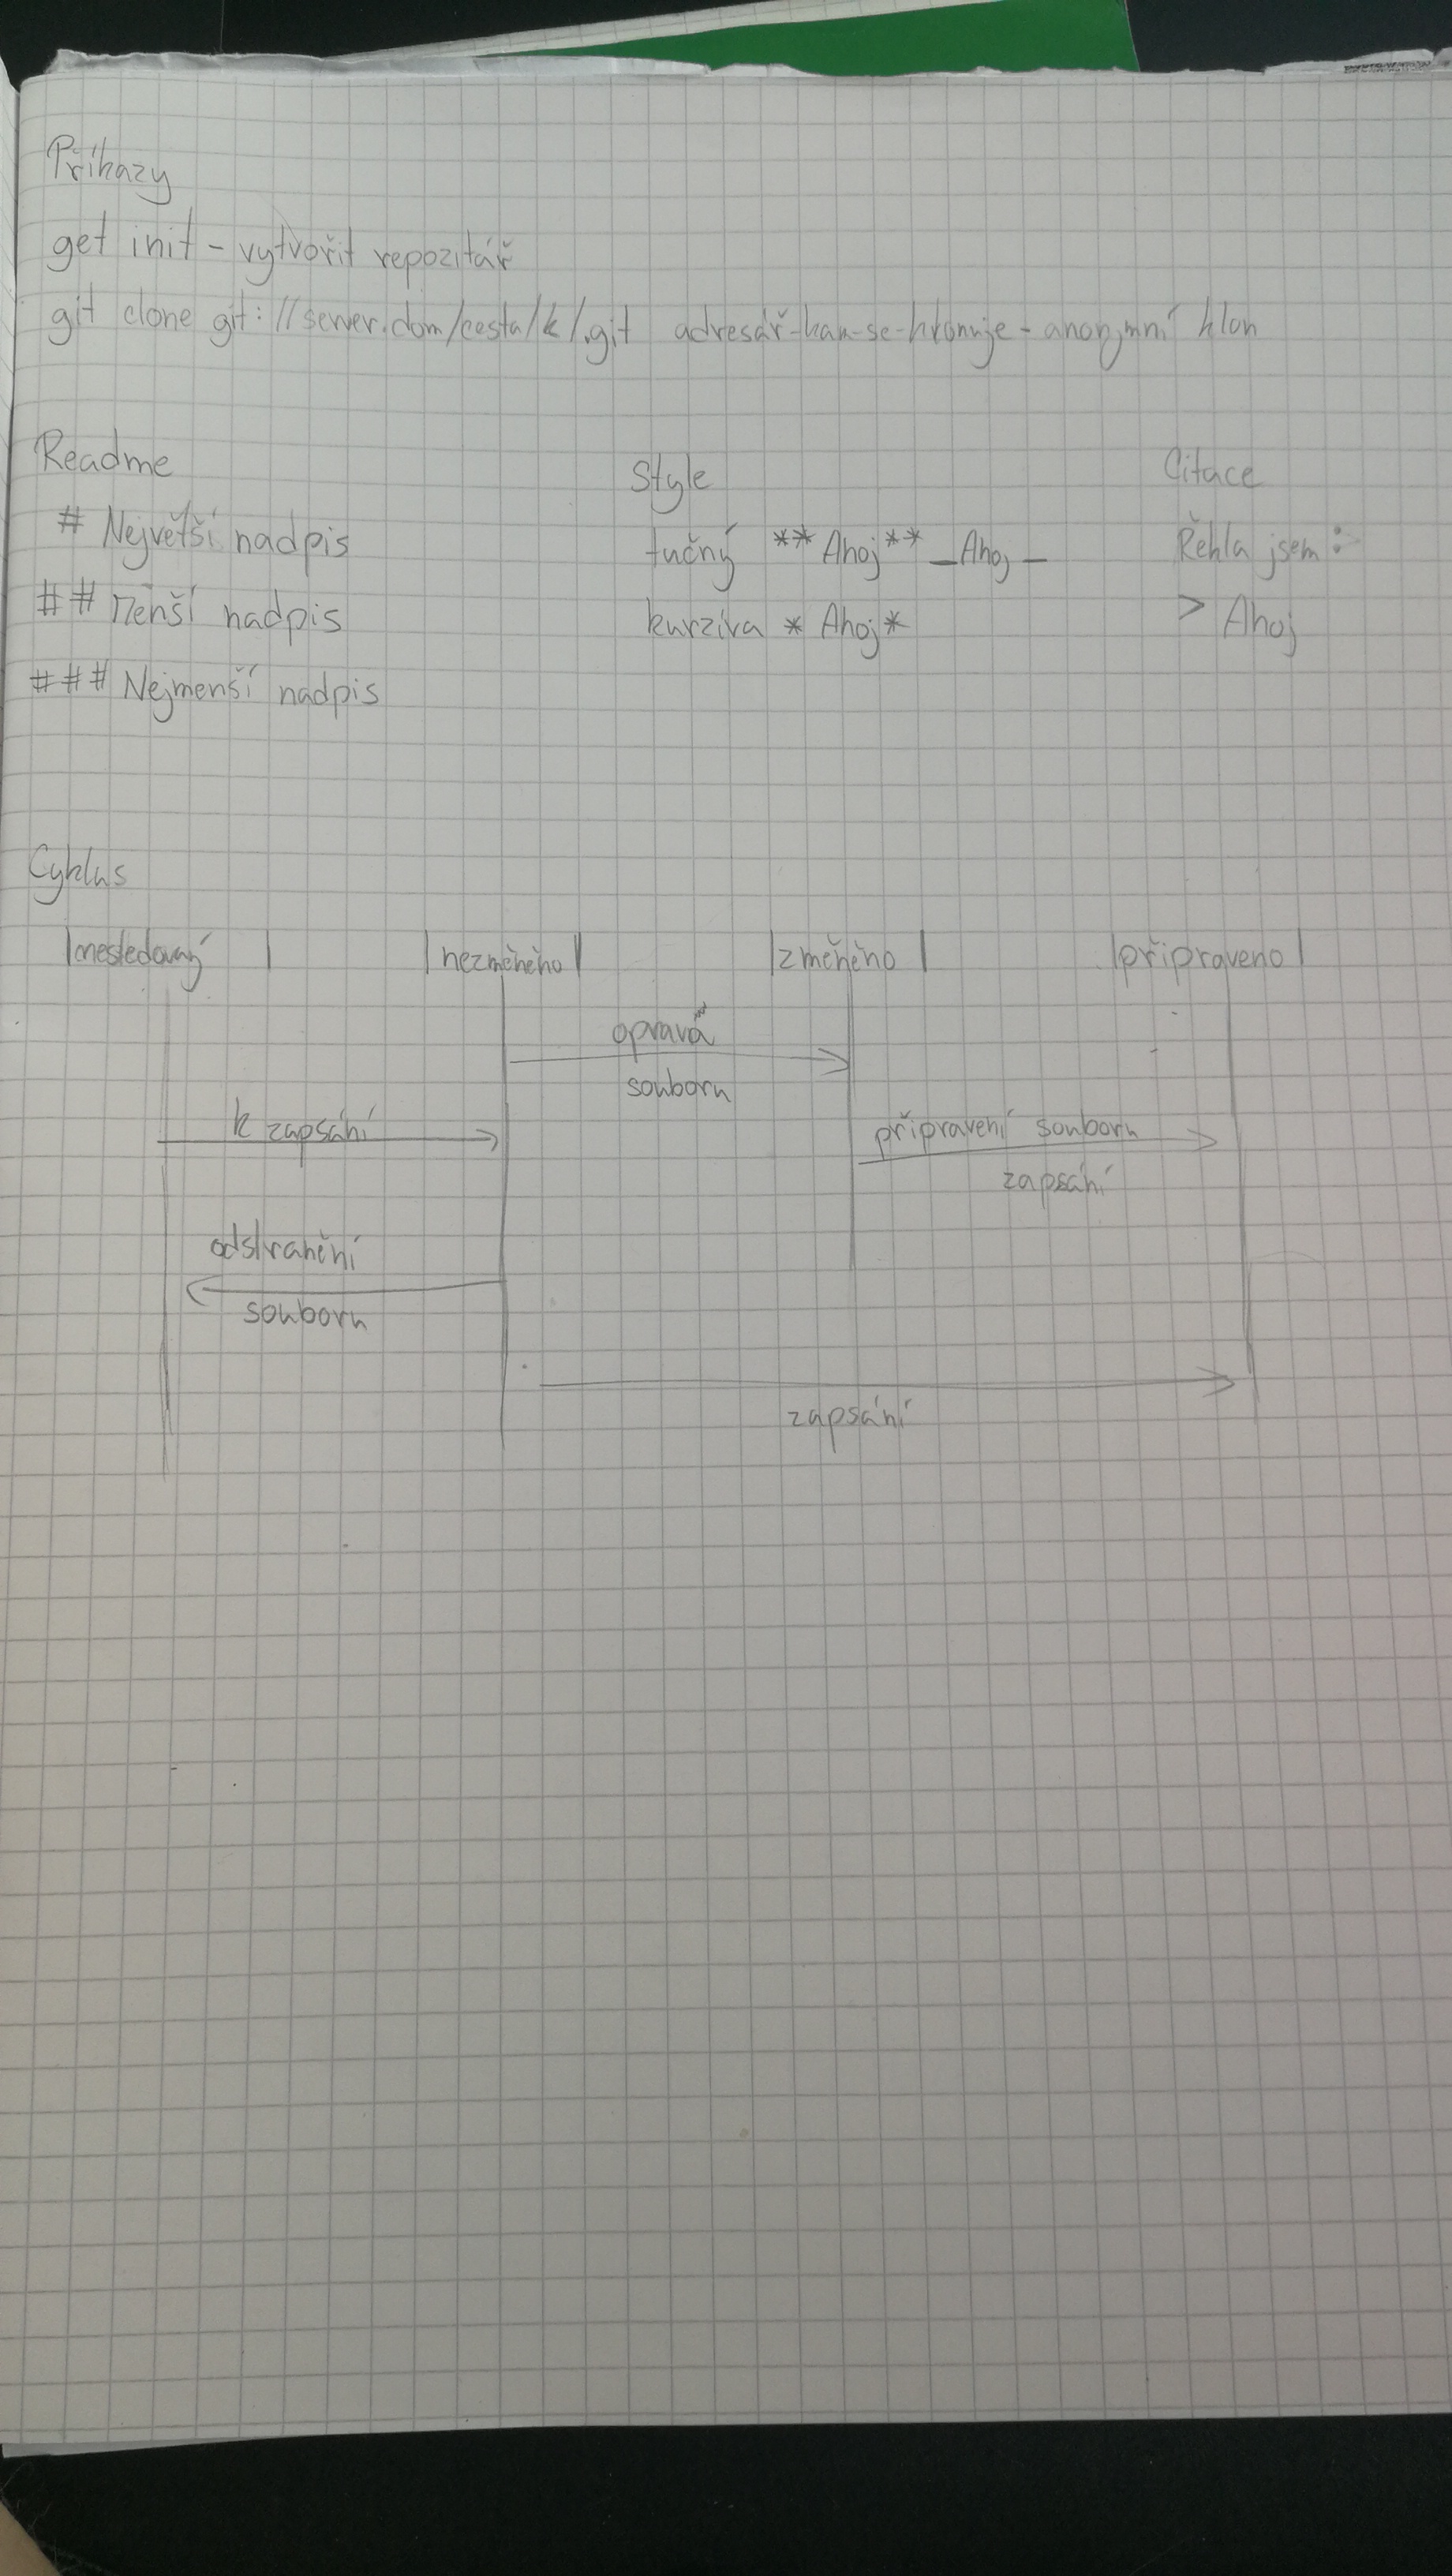 Příkazy
get init - vytvořit repozitář
git clone git://server.dom/cesta/k/.git adresář-kam-se-klonuje - anonymní klon
Readme
# Největší nadpis
## Menší nadpis
### Nejmenší nadpis
Style
tučný **Ahoj** _Ahoj_
kurzíva *Ahoj*
Citace
Řekla jsem:
> Ahoj
Cyklus
|nesledovaný | |nezměněno| |změněno| |připraveno|
oprava
souboru
k zapsání
připravení souboru
zapsání
odstranění
souboru
zapsání